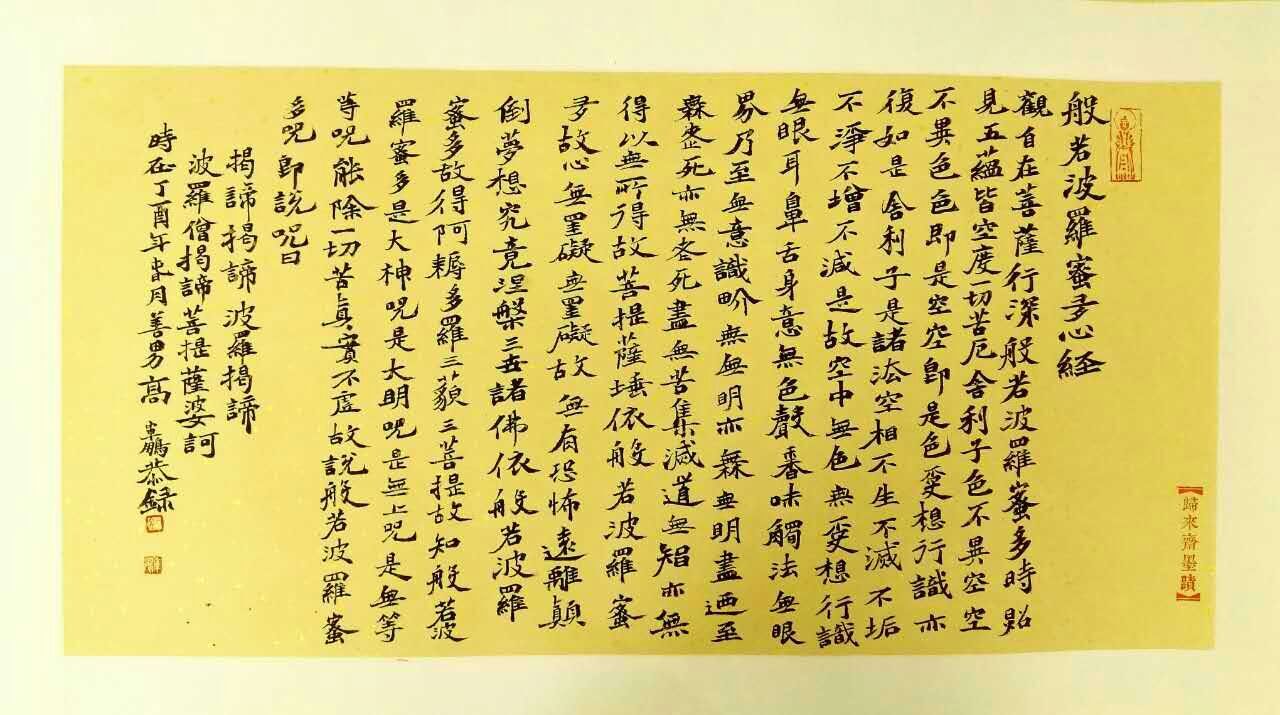 般若波羅蜜多心経
觀自在菩薩行深般若波羅蜜多時照
見五蘊皆空度一切苦厄舍利子色不異空空
不異色色即是空空即是色受想行識亦
復如是舍利子是諸法空相不生不滅不垢
不淨不增不減是故空中無色無受想行識
無眼耳鼻舌身意無色聲香味觸法無眼
界乃至無意識界無無明亦無無明盡迺至
無老死亦無老死盡無苦集滅道無智亦無
得以無所得故菩提薩埵依般若波羅蜜
多故心無罣礙無罣礙故無有恐怖遠離顛
倒夢想究竟涅槃三世諸佛依般若波羅
蜜多故得阿耨多羅三藐三菩提故知般若波
羅蜜多是大神咒是大明咒是無上咒是無等
等咒能除一切苦真實不虛故說般若波羅蜜
多咒即說咒曰
揭諦揭諦波羅揭諦
波羅僧揭諦菩提薩婆訶
時在丁酉年月善男高恭録
歸來齋墨蹟